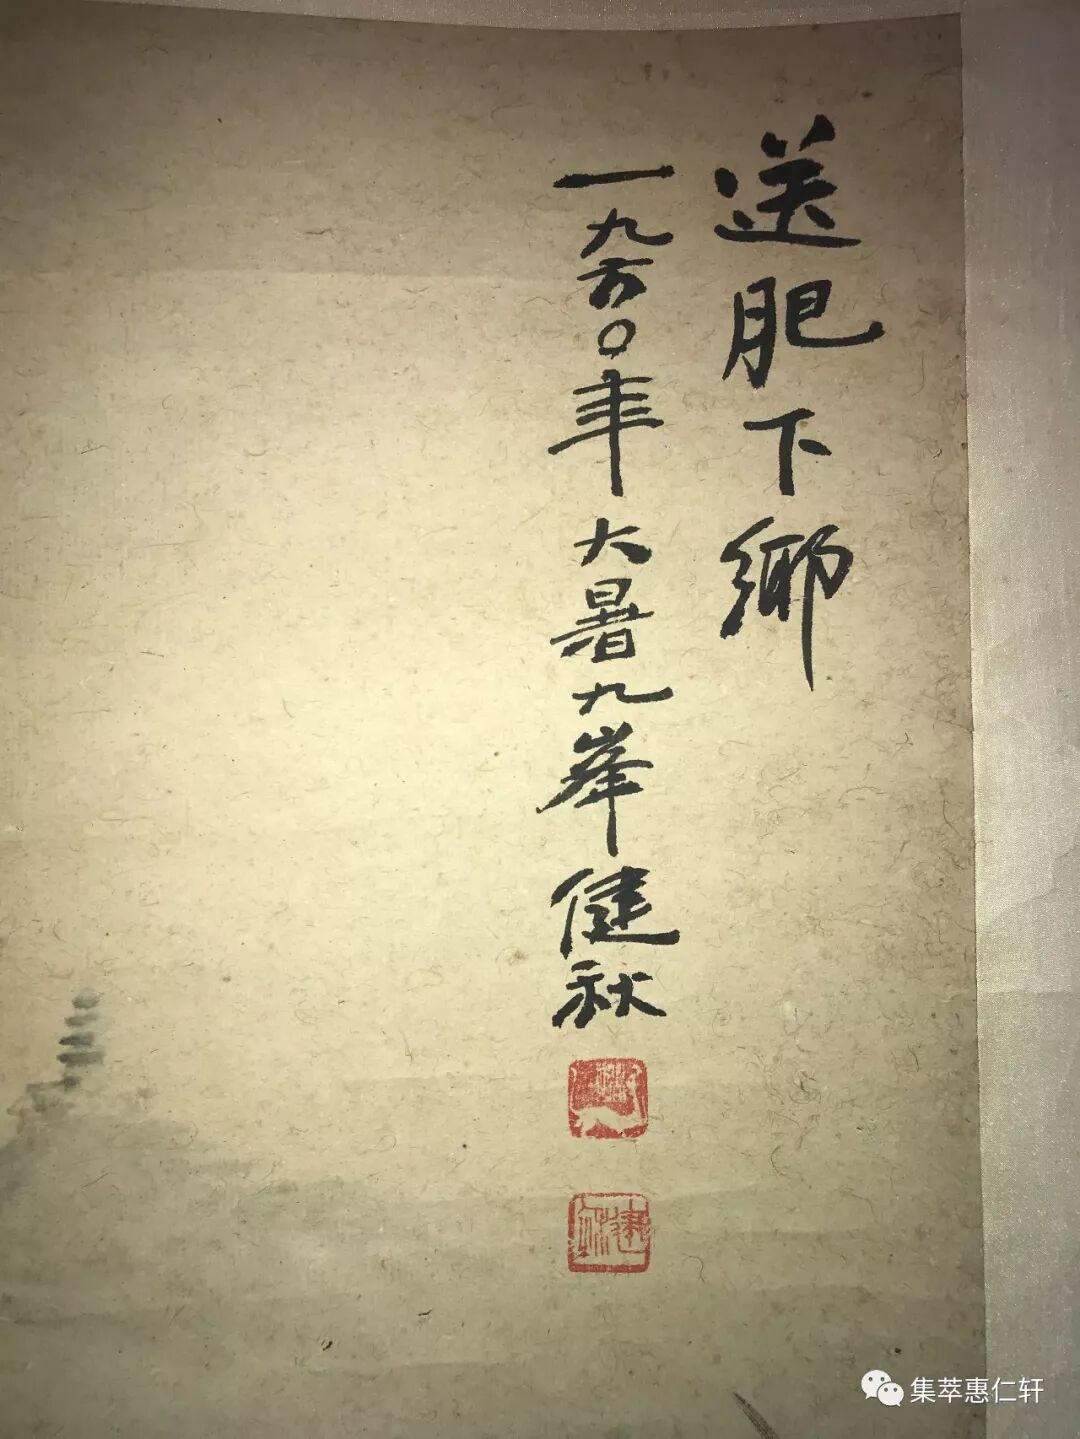 送肥下鄉
一九六〇年大暑九峯健秋
集萃惠仁轩